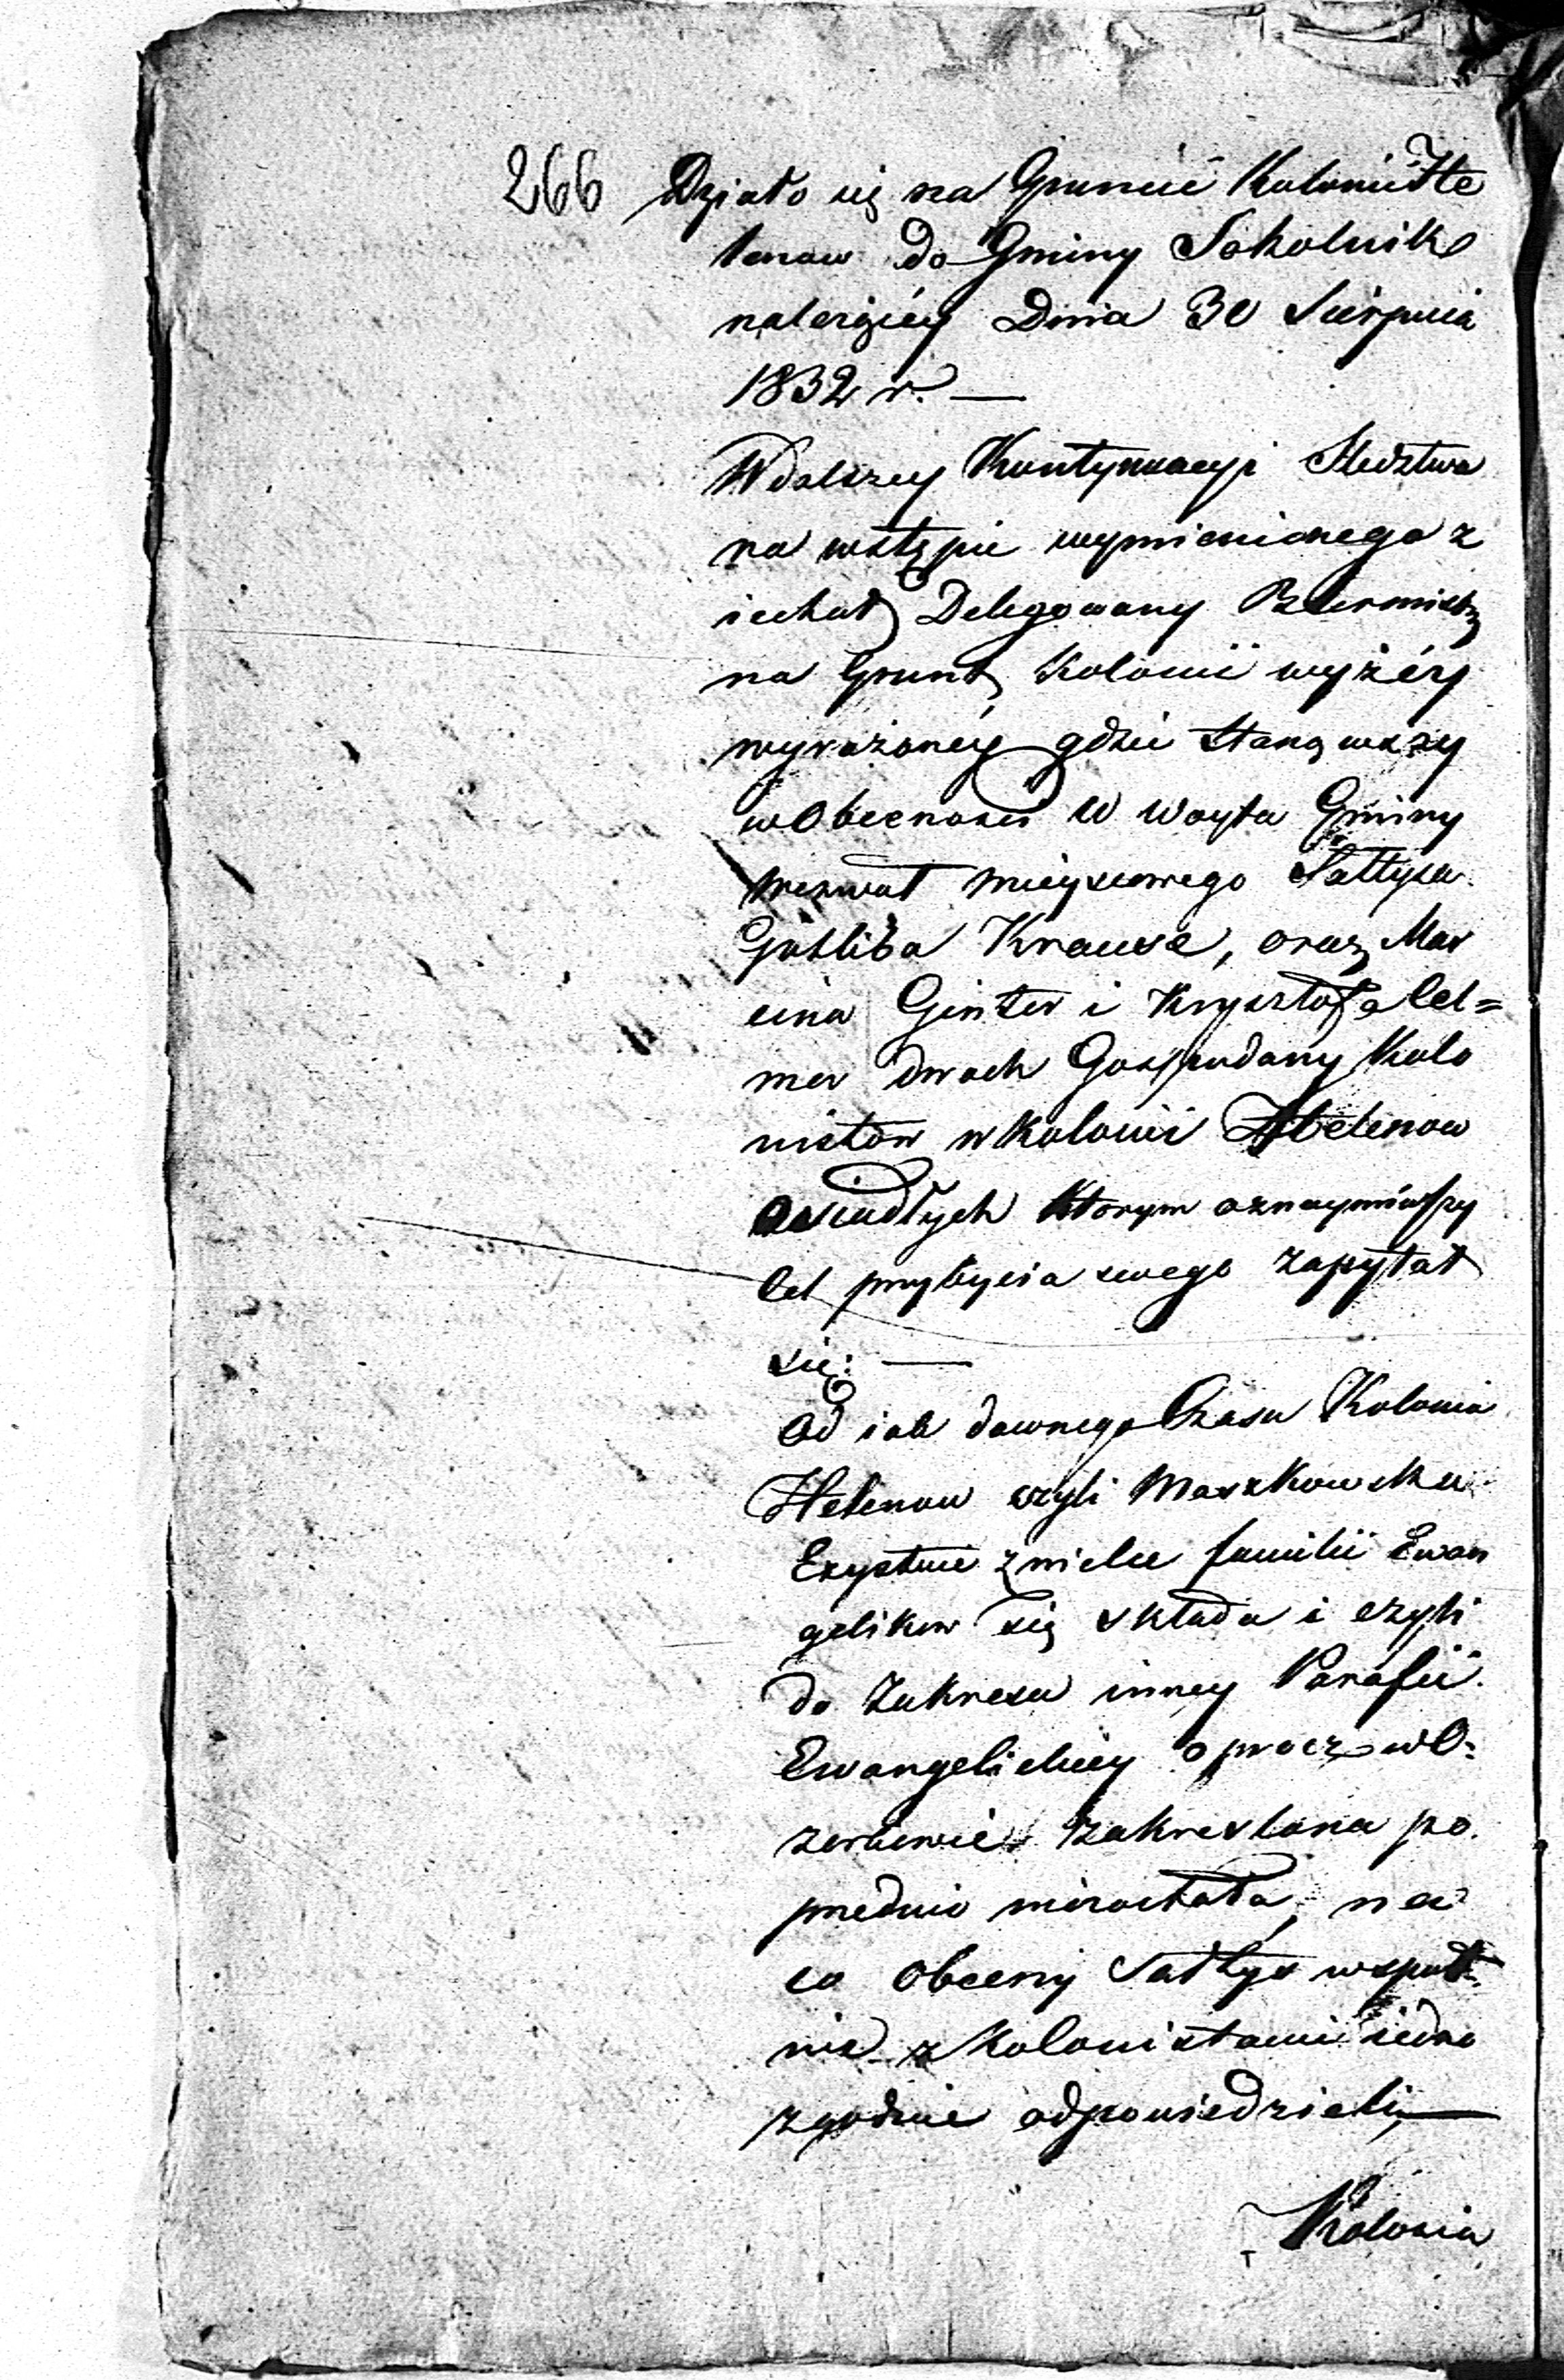 266 Działo się na Gruncie Kolonii He
lenow do Gminy Sokolniki
należącey Dnia 30 Sierpnia
1832 r. —
W dalszey Kontynuacyi Sledztwa
na wstępie wymienionego z
iechał Delegowany Burmistrz
na Grunt Kolonii wyżéy
wyrażoney gdzie stanąwszy
w Obecności W Woyta Gminy
wezwał mieyscowego Sołtysa
Gotliba Krause, oraz Mar
cina Ginter i Krysztofa Cel=
mer dwoch Gospodarzy Kolo
nistow w Kolonii Helenow
osiadłych ktorym oznaymiwszy
Cel przybycia swego zapytał
się: —
Od iak dawnego Czasu Kolonia
Helenow czyli Maszkowska
Exystuie z wielu familii Ewan
gelikow się składa i czyli
do Zakresu inney Parafii
Ewangelickiey oprocz w O=
zorkowie zakreslona po
przednio nie została, na
co Obecny Sołtys wspol=
nie z Kolonistami iedno
zgodnie odpowiedzieli, —
Kolonia